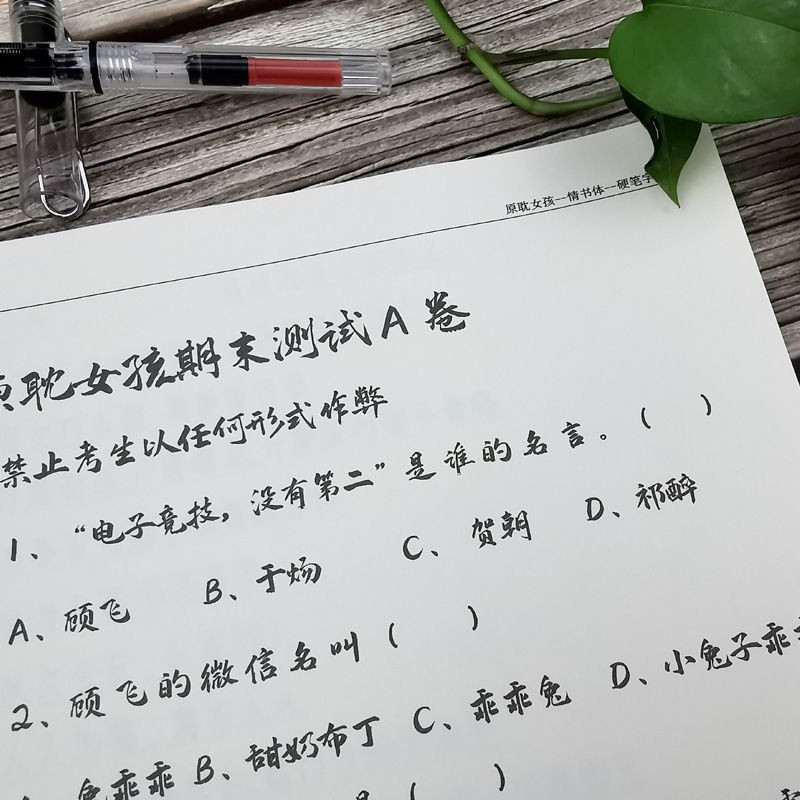 原耽女孩--情书体--硬笔字
原耽女孩期末测试A卷
禁止考生以任何形式作弊
1、“电子竞技，没有第二”是谁的名言。( )
A、顾飞 B、于炀 C、贺朝 D、祁醉
2、顾飞的微信名叫( )
兔乖乖 B、甜奶布丁 C、乖乖兔 D、小兔子乖
是( )